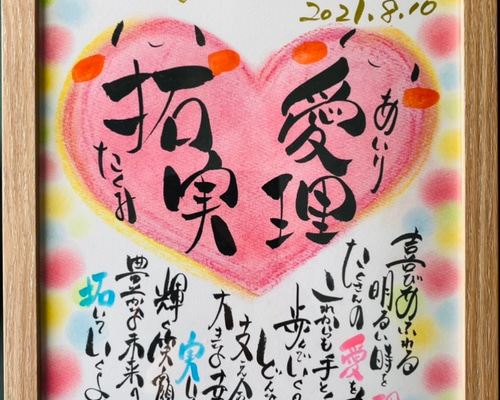 2021.8.10
愛理
あいり
拓実
たくみ
喜びあふれる
明るい時を
たくさんの愛を
これからも手と
歩いていくの
どん
支え合
大きな幸
実し
輝く笑顔
豊かな未来の
拓いていくよ